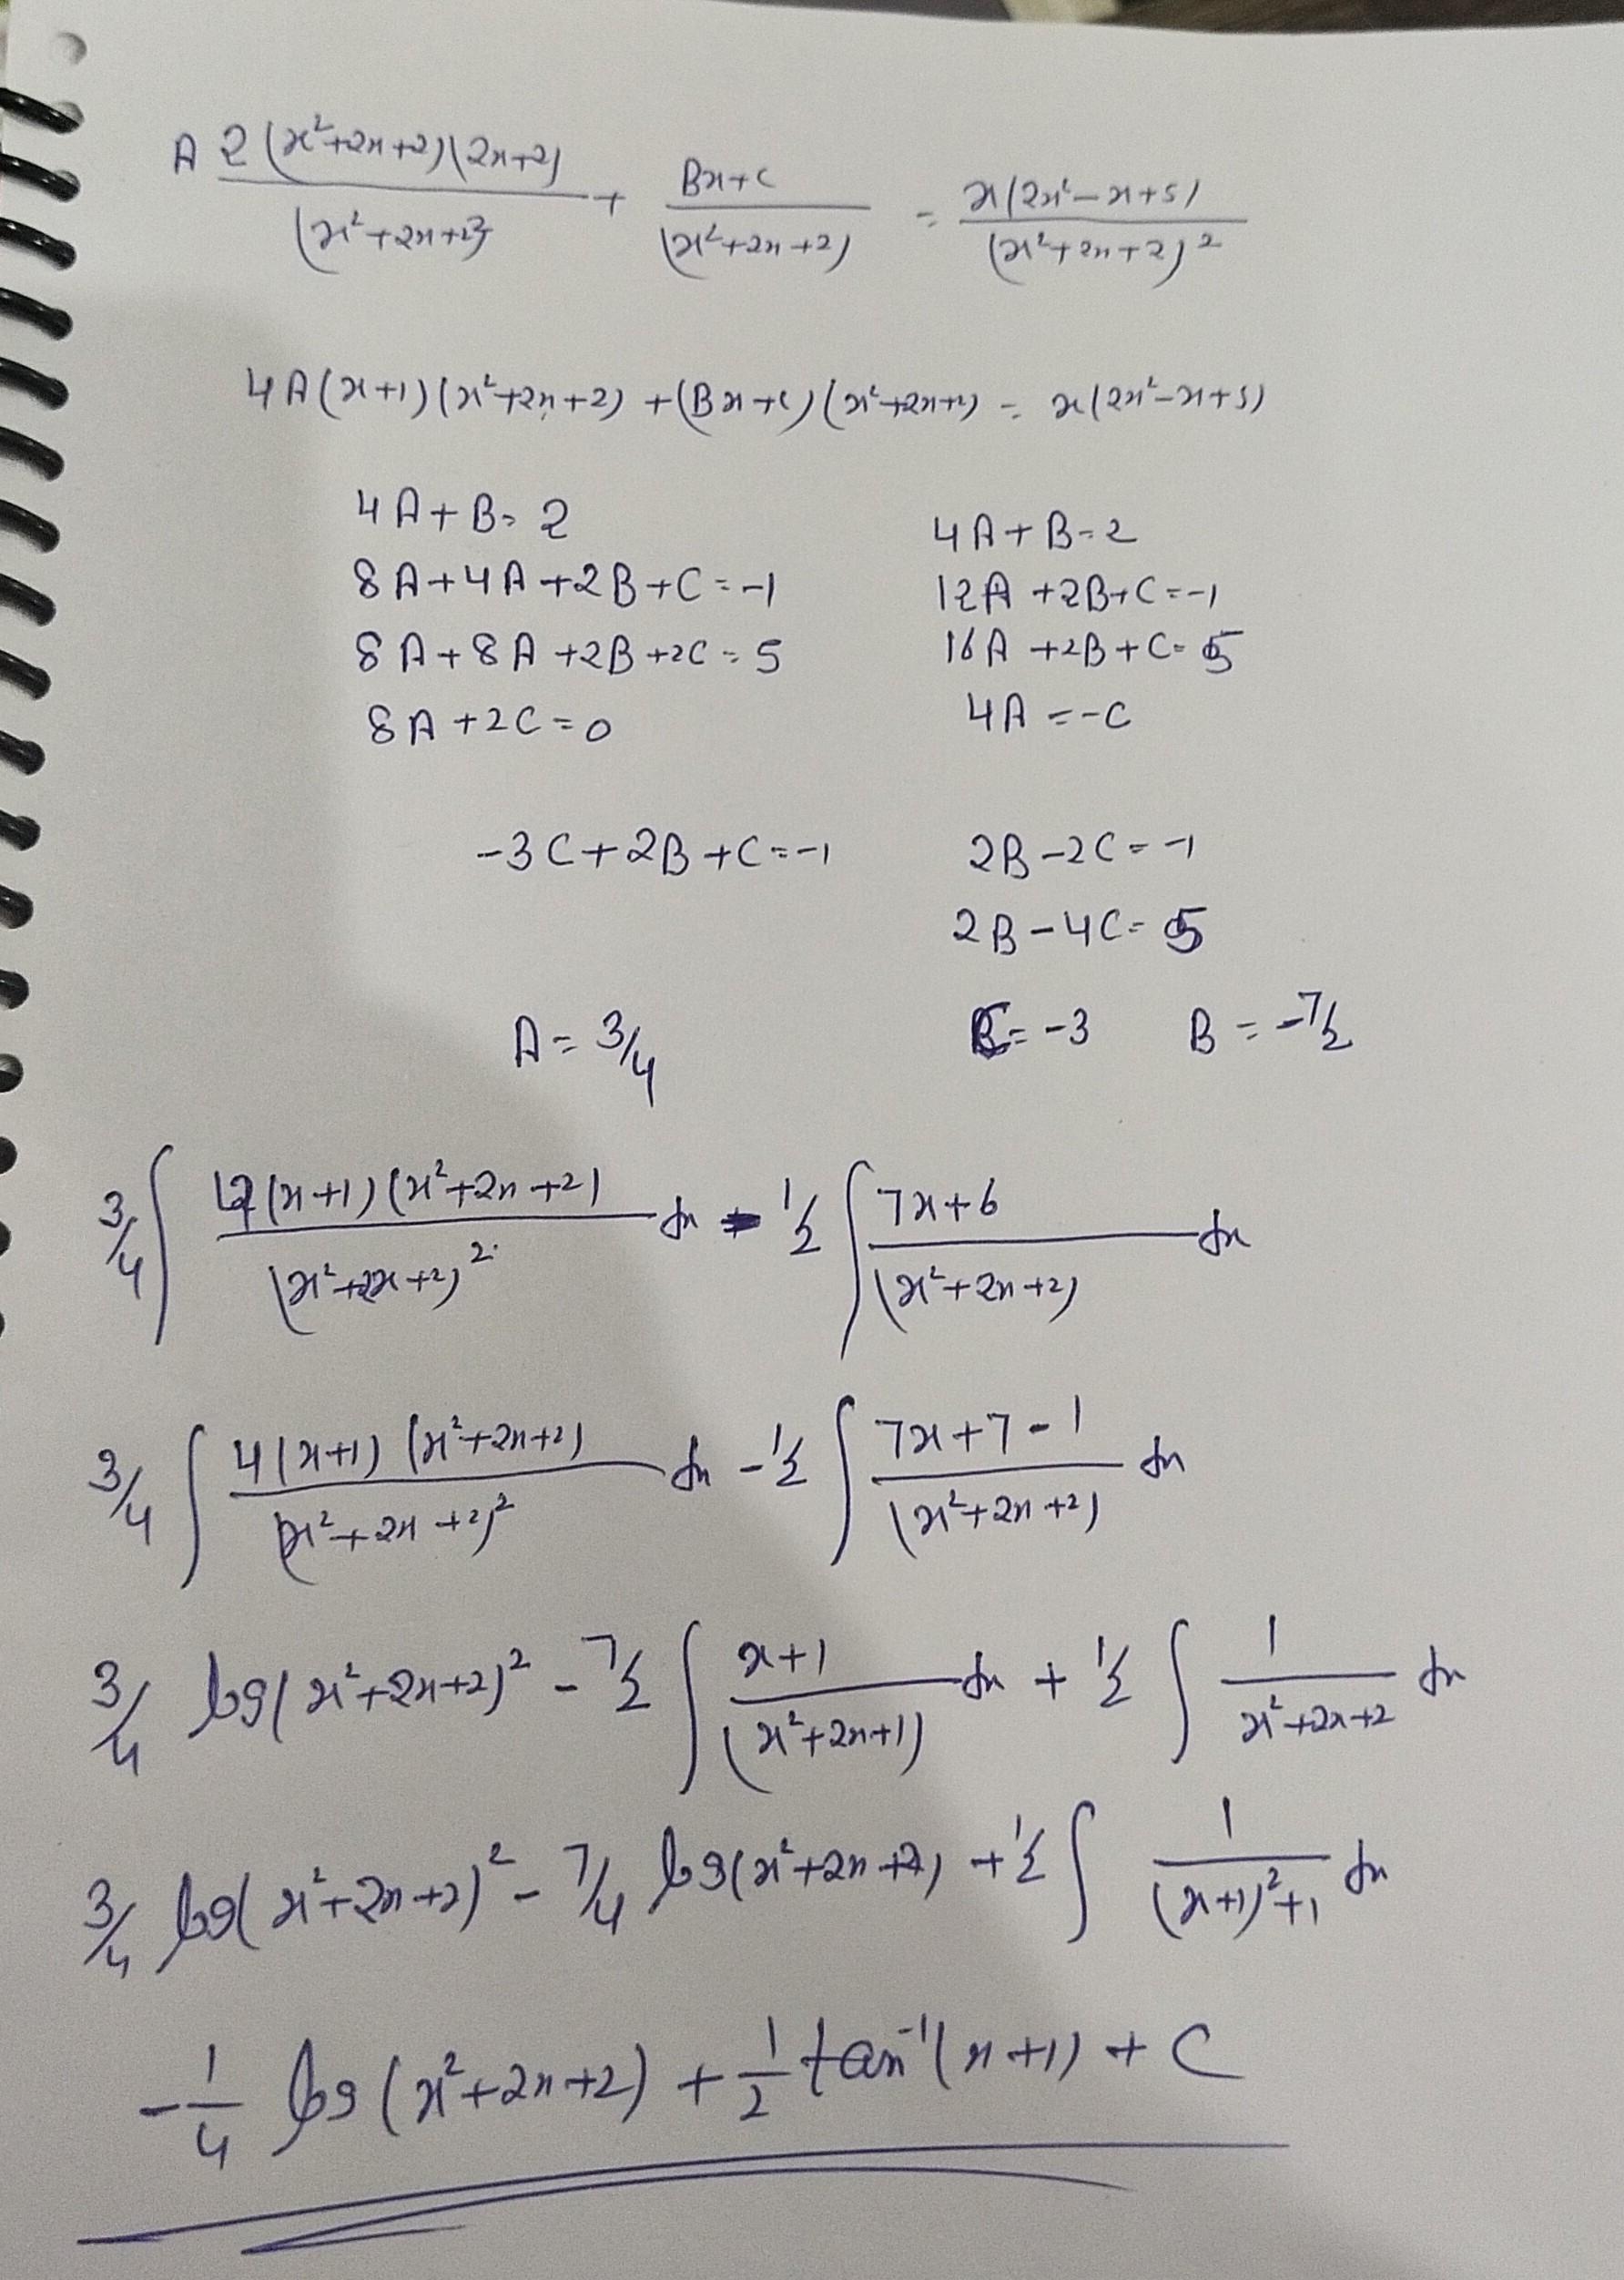 A 2(x²+2x+2)(2x+2)/(x²+2x+2)² + Bx+C/(x²+2x+2) = x(2x²-x+5)/(x²+2x+2)²
4A(x+1)(x²+2x+2) + (Bx+C)(x²+2x+2) = x(2x²-x+5)
4A+B=2 4A+B=2
8A+4A+2B+C=-1 12A+2B+C=-1
8A+8A+2B+2C=5 16A+2B+C=5
8A+2C=0 4A=-C
-3C+2B+C=-1 2B-2C=-1
2B-4C=5
A=3/4 C=-3 B=-7/2
3/4 ∫ 4(x+1)(x²+2x+2)/(x²+2x+2)² dx - 1/2 ∫ 7x+6/(x²+2x+2) dx
3/4 ∫ 4(x+1)(x²+2x+2)/(x²+2x+2)² dx - 1/2 ∫ 7x+7-1/(x²+2x+2) dx
3/4 log(x²+2x+2)² - 7/2 ∫ x+1/(x²+2x+1) dx + 1/2 ∫ 1/x²+2x+2 dx
3/4 log(x²+2x+2)² - 7/4 log(x²+2x+2) + 1/2 ∫ 1/(x+1)²+1 dx
-1/4 log(x²+2x+2) + 1/2 tan⁻¹(x+1) + C